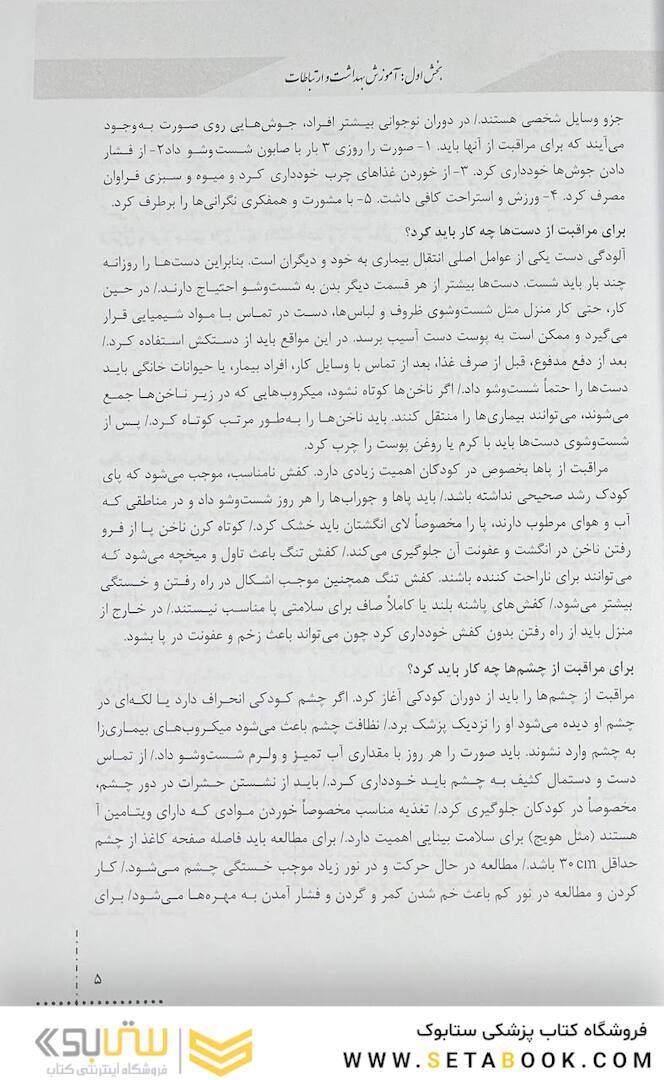 بخش اول: آموزش بهداشت و ارتباطات
جزو وسایل شخصی هستند./ در دوران نوجوانی بیشتر افراد، جوش‌هایی روی صورت به‌وجود
می‌آیند که برای مراقبت از آنها باید. ۱- صورت را روزی ۳ بار با صابون شست‌وشو داد۲- از فشار
دادن جوش‌ها خودداری کرد. ۳- از خوردن غذاهای چرب خودداری کرد و میوه و سبزی فراوان
مصرف کرد. ۴- ورزش و استراحت کافی داشت. ۵- با مشورت و همفکری نگرانی‌ها را برطرف کرد.
برای مراقبت از دست‌ها چه کار باید کرد؟
آلودگی دست یکی از عوامل اصلی انتقال بیماری به خود و دیگران است. بنابراین دست‌ها را روزانه
چند بار باید شست. دست‌ها بیشتر از هر قسمت دیگر بدن به شست‌وشو احتیاج دارند./ در حین
کار، حتی کار منزل مثل شست‌وشوی ظروف و لباس‌ها، دست در تماس با مواد شیمیایی قرار
می‌گیرد و ممکن است به پوست دست آسیب برسد. در این مواقع باید از دستکش استفاده کرد./
بعد از دفع مدفوع، قبل از صرف غذا، بعد از تماس با وسایل کار، افراد بیمار، یا حیوانات خانگی باید
دست‌ها را حتماً شست‌وشو داد./ اگر ناخن‌ها کوتاه نشود، میکروب‌هایی که در زیر ناخن‌ها جمع
می‌شوند، می‌توانند بیماری‌ها را منتقل کنند. باید ناخن‌ها را به‌طور مرتب کوتاه کرد./ پس از
شست‌وشوی دست‌ها باید با کرم یا روغن پوست را چرب کرد.
مراقبت از پاها بخصوص در کودکان اهمیت زیادی دارد. کفش نامناسب، موجب می‌شود که پای
کودک رشد صحیحی نداشته باشد./ باید پاها و جوراب‌ها را هر روز شست‌وشو داد و در مناطقی که
آب و هوای مرطوب دارند، پا را مخصوصاً لای انگشتان باید خشک کرد./ کوتاه کرن ناخن پا از فرو
رفتن ناخن در انگشت و عفونت آن جلوگیری می‌کند./ کفش تنگ باعث تاول و میخچه می‌شود که
می‌توانند برای ناراحت کننده باشند. کفش تنگ همچنین موجب اشکال در راه رفتن و خستگی
بیشتر می‌شود./ کفش‌های پاشنه بلند یا کاملاً صاف برای سلامتی پا مناسب نیستند./ در خارج از
منزل باید از راه رفتن بدون کفش خودداری کرد چون می‌تواند باعث زخم و عفونت در پا بشود.
برای مراقبت از چشم‌ها چه کار باید کرد؟
مراقبت از چشم‌ها را باید از دوران کودکی آغاز کرد. اگر چشم کودکی انحراف دارد یا لکه‌ای در
چشم او دیده می‌شود او را نزدیک پزشک برد./ نظافت چشم باعث می‌شود میکروب‌های بیماری‌زا
به چشم وارد نشوند. باید صورت را هر روز با مقداری آب تمیز و ولرم شست‌وشو داد./ از تماس
دست و دستمال کثیف به چشم باید خودداری کرد./ باید از نشستن حشرات در دور چشم،
مخصوصاً در کودکان جلوگیری کرد./ تغذیه مناسب مخصوصاً خوردن موادی که دارای ویتامین آ
هستند (مثل هویج) برای سلامت بینایی اهمیت دارد./ برای مطالعه باید فاصله صفحه کاغذ از چشم
حداقل ۳۰ cm باشد./ مطالعه در حال حرکت و در نور زیاد موجب خستگی چشم می‌شود./ کار
کردن و مطالعه در نور کم باعث خم شدن کمر و گردن و فشار آمدن به مهره‌ها می‌شود/ برای
۵
فروشگاه کتاب پزشکی ستابوک
WWW.SETABOOK.COM
ستابوک
فروشگاه اینترنتی کتاب